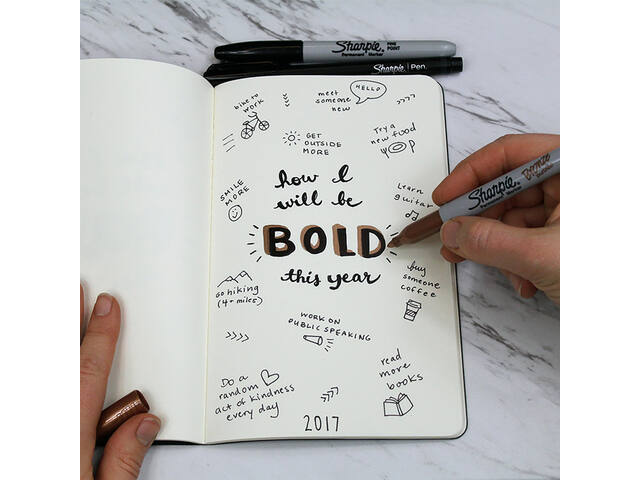 Sharpie
Permanent Marker
FINE
POINT
Sharpie. Pen.
bike to
work
meet
someone
new
HELLO
Try a
new food
GET
OUTSIDE
MORE
how I
will be
BOLD
this year
SMILE
MORE
Learn
guitar
Sharpie
Permanent Marker
Bronze
go hiking
(4+ miles)
buy
someone
coffee
WORK ON
PUBLIC SPEAKING
Do a
random
act of kindness
every day
read
more
books
2017